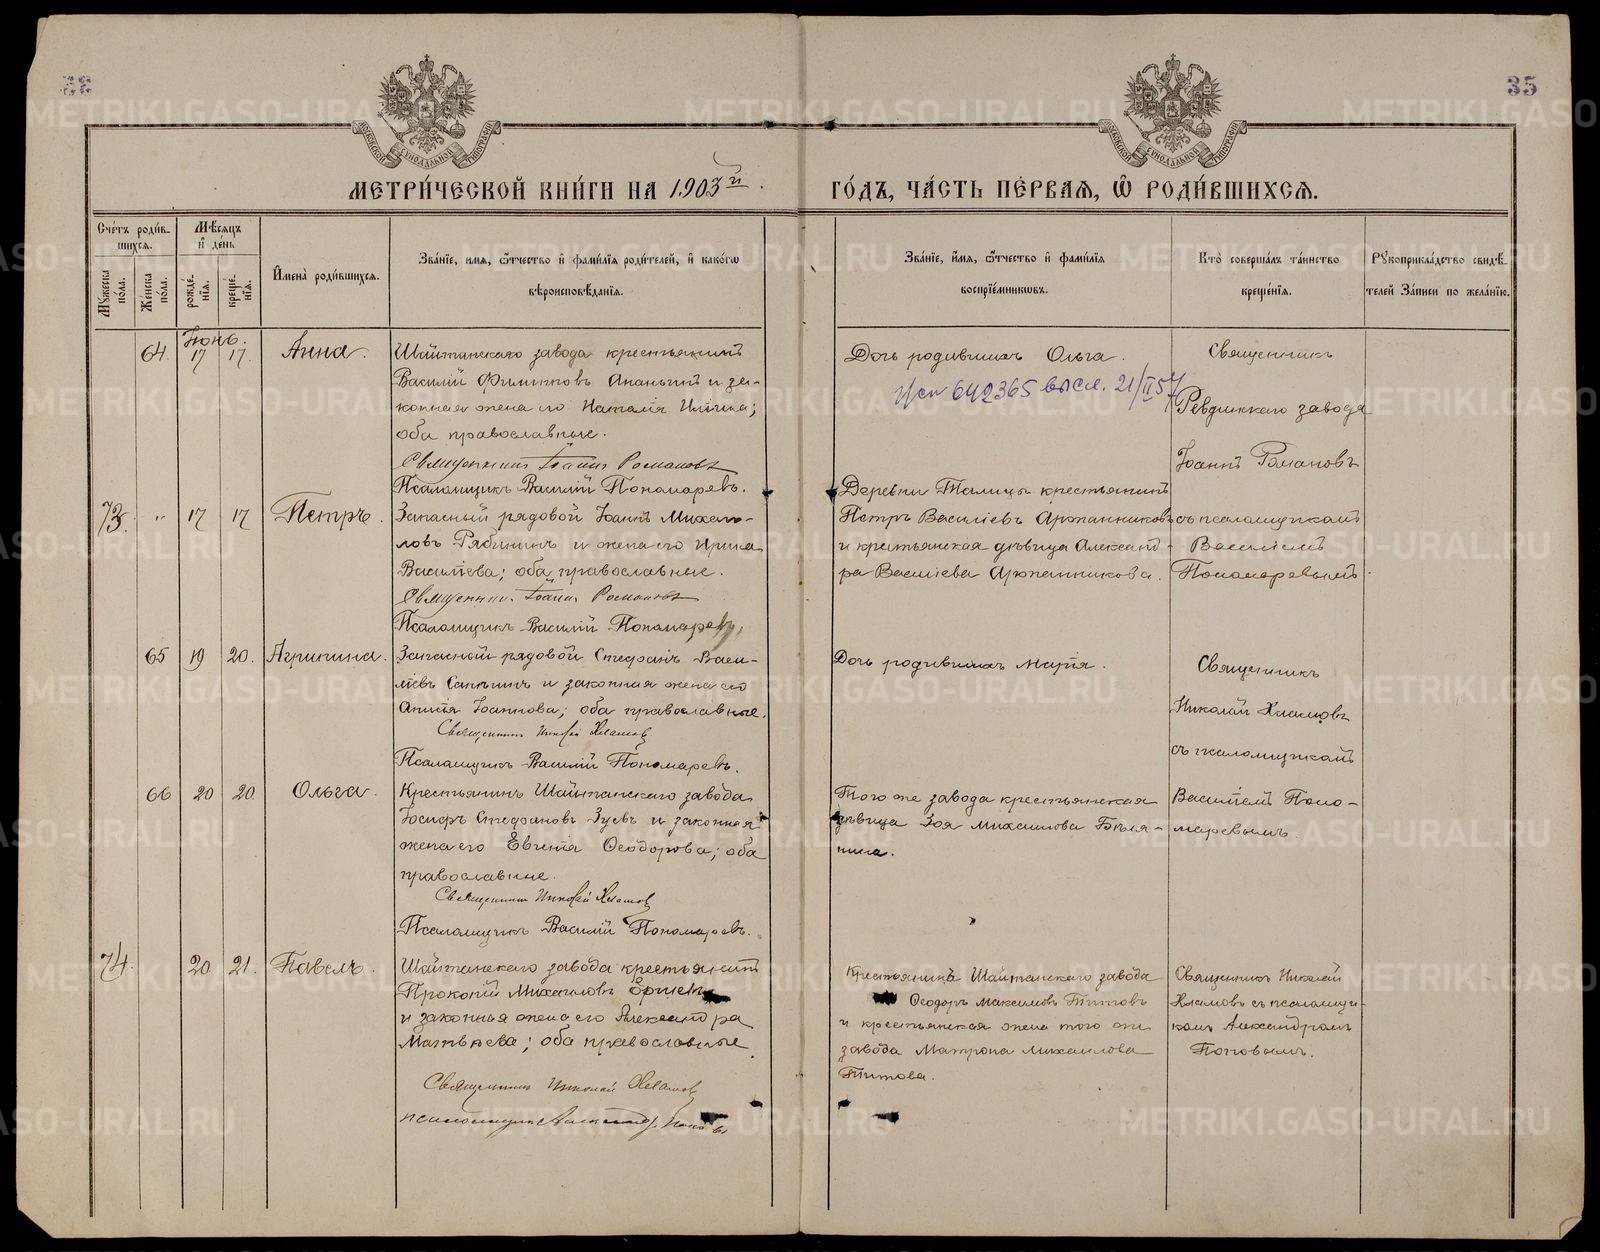 35
МЕТРИ́ЧЕСКОЙ КНИ́ГИ НА 1903й. ГО́ДЪ, ЧА́СТЬ ПЕ́РВАЯ, Ѡ РОДИ́ВШИХСЯ.
Сче́тъ роди́вшихся.
Мѣсяцъ и де́нь
Мꙋжеска по́ла.
Же́нска по́ла.
рожде́нїя.
креще́нїя.
И҆мена̀ роди́вшихся.
Зва́нїе, имя, ѻ҆́тчество и҆ фами́лїя роди́телей, и҆ како́гѡ
вѣроисповѣ́данїя.
Зва́нїе, и҆́мя, ѻ҆́тчество и҆ фами́лїя
воспрїе́мникѡвъ.
Кто̀ соверша́лъ та́инство
креще́нїя.
Рꙋкоприкла́дство свидѣ́телей За́писи по жела́нїю.
Іюнь.
64. 17 17. Анна.
Шайтанскаго завода крестьянинъ
Василій Филипповъ Ананьинъ и за-
конная жена его Наталія Ильина;
оба православные.
Священникъ Іоаннъ Романовъ
Псаломщикъ Василій Пономаревъ.
Дочь родившихъ Ольга.
642365 высл. 21/II 57
Священникъ
Ревдинскаго завода
Іоаннъ Романовъ
73. " 17 17 Петръ.
Запасный рядовой Іоаннъ Михаи-
ловъ Рябининъ и жена его Ирина
Васильева; оба православные.
Священник. Іоаннъ Романовъ
Псаломщикъ Василій Пономаревъ,
Деревни Талицы крестьянинъ
Петръ Василіевъ Аржанниковъ
и крестьянская дѣвица Александ-
ра Василіева Аржанникова.
съ псаломщикомъ
Василіемъ
Пономаревымъ.
65 19 20. Агрипина.
Запасный рядовой Стефанъ Васи-
ліевъ и законная жена его
Анисія Іоаннова; оба православные.
Священникъ Николай Хламовъ
Псаломщикъ Василій Пономаревъ.
Дочь родившихъ Марія.
Священникъ
Николай Хламовъ
съ псаломщикомъ
66 20 20. Ольга.
Крестьянинъ Шайтанскаго завода
Іосифъ Стефановъ Зуевъ и законная
жена его Евгенія Ѳеодорова; оба
православные.
Священникъ Николай Хламовъ
Псаломщикъ Василій Пономаревъ.
Того же завода крестьянская
дѣвица Зоя Михаилова Бѣля-
нина.
Василіемъ Поно-
маревымъ.
74. 20 21. Павелъ.
Шайтанскаго завода крестьянинъ
Прокопій Михаиловъ
и законная жена его Александра
Матвѣева; оба православные.
Священникъ Николай Хламовъ
псаломщикъ Александръ Поповъ
Крестьянинъ Шайтанскаго завода
Ѳеодоръ Максимовъ Титовъ
и крестьянская жена того же
завода Матрона Михаилова
Титова.
Священникъ Николай
Хламовъ съ псаломщи-
комъ Александромъ
Поповымъ.